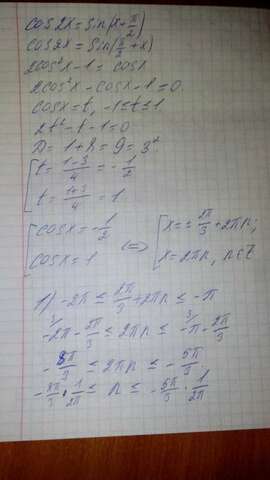 cos2x = sin(x + π/2)
cos2x = sin(π/2 + x)
2cos²x - 1 = cosx
2cos²x - cosx - 1 = 0
cosx = t, -1 ≤ t ≤ 1
2t² - t - 1 = 0
D = 1 + 8 = 9 = 3²
[ t = (1-3)/4 = -1/2
[ t = (1+3)/4 = 1
[ cosx = -1/2 <=> [ x = ± 2π/3 + 2πn;
[ cosx = 1 [ x = 2πn, n∈Z
1) -2π ≤ 2π/3 + 2πn ≤ -π
-2π - 2π/3 ≤ 2πn ≤ -π - 2π/3
-8π/3 ≤ 2πn ≤ -5π/3
-8π/3 · 1/2π ≤ n ≤ -5π/3 · 1/2π